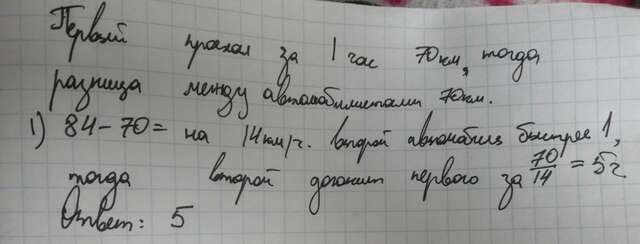 Первый проехал за 1 час 70 км, тогда
разница между автомобилистами 70 км.
1) 84-70= на 14 км/ч. второй автомобиль быстрее 1,
тогда второй догонит первого за 70/14 = 5 ч
Ответ: 5